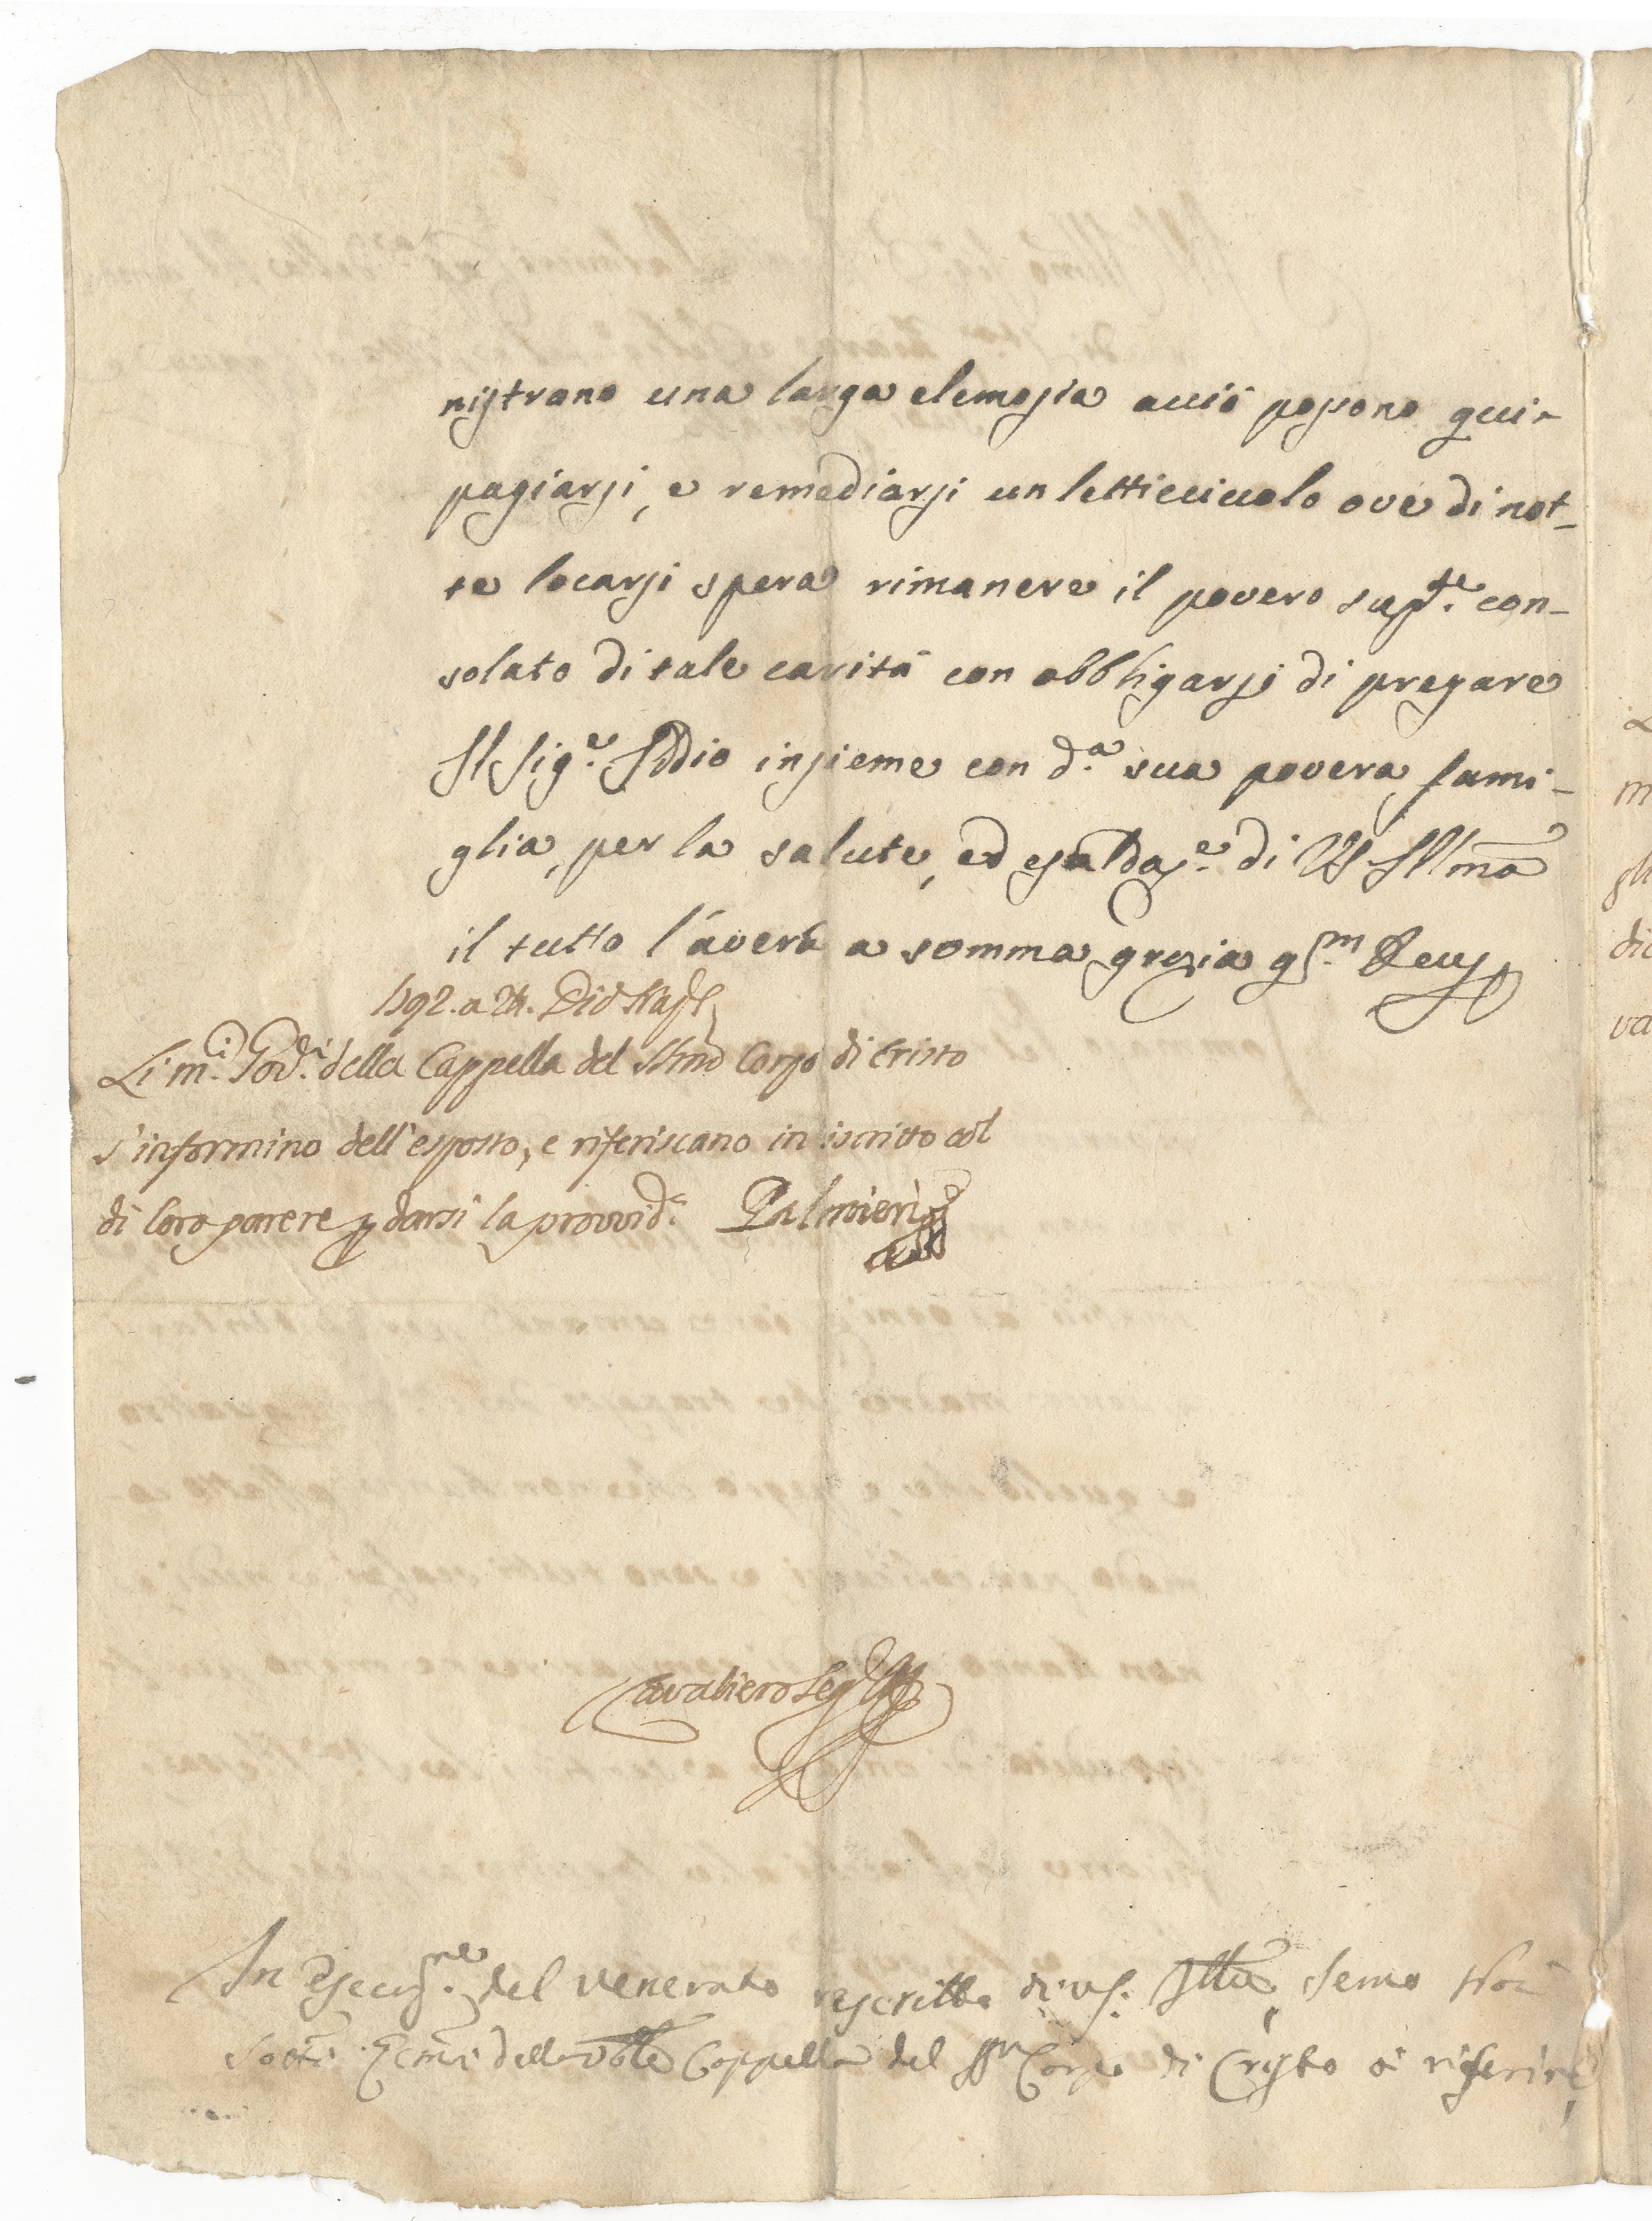 nistrano una larga elemosia acciò possono qui-
pagiarsi, e remediarsi un letticciuolo ove di not-
te locarsi spera rimanere il povero supp.te con-
solato di tale carità con obbligarsi di pregare
Il Sig.e Iddio insieme con d.a sua povera fami-
glia, per la salute, ed esaltaz.e di VS Illma
il tutto l'averà a somma grazia
Li m.ci Gov.ri della Cappella del SSmo Corpo di Cristo
s'informino dell'esposto, e riferiscano in iscritto col
di loro parere p darsi la provvid.a Palmieri
Cavaliero Seg.
In esecuz.ne del venerato rescritto di VS. Semo Noi
della Cappella del SS.mo Corpo di Cristo à riferire,